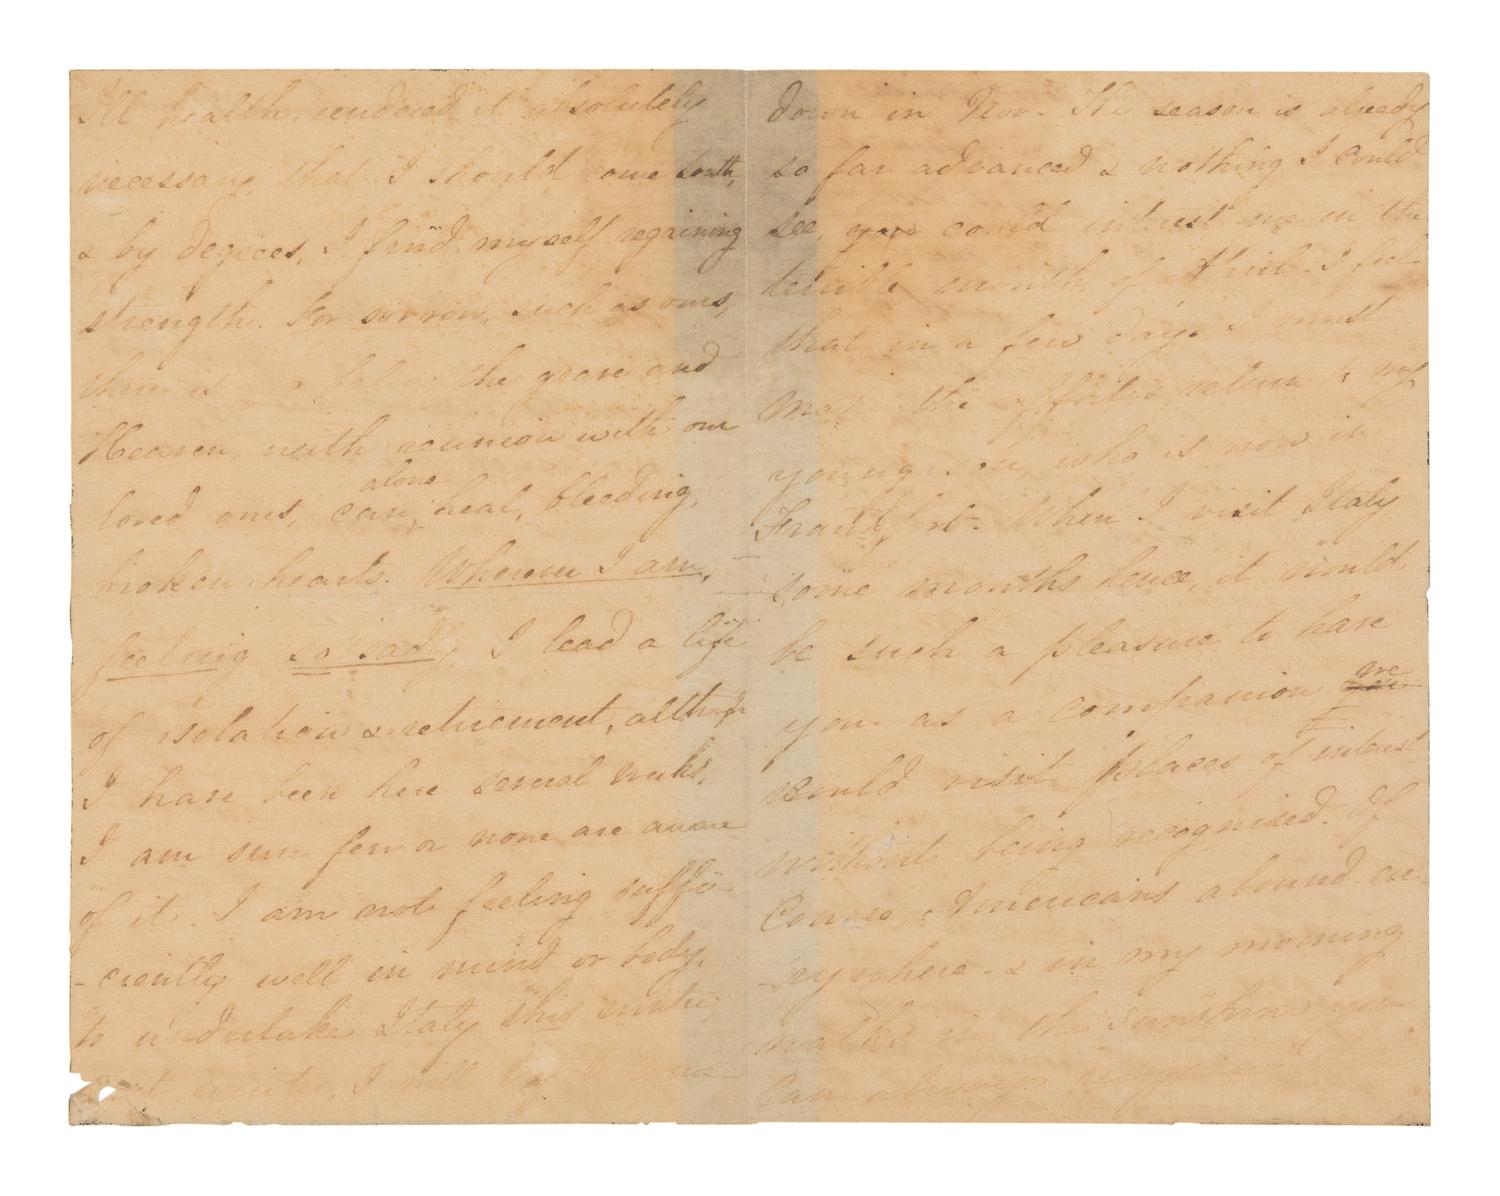 Ill health, rendered it absolutely
necessary, that I should come South,
& by degrees, I find myself regaining
strength. For sorrow, such as ours,
there is no balm, the grave and
Heaven, with reunion with our
alone
loved ones, can, heal, bleeding,
broken hearts. Wherever I am,
feeling so sadly I lead a life
of isolation & retirement, although
I have been here several weeks,
I am sure few or none are aware
of it. I am not feeling suffi
-ciently well in mind or body,
to undertake Italy this winter,
next winter, I will try to come
down in Nov. The season is already
so far advanced & nothing I could
see, could interest me in the
terrible month of April. I feel
that in a few days I must
make the effort & return to my
young son, who is now in
Frankfort. When I visit Italy
some months hence, it would
be such a pleasure to have
you as a companion we
would visit places of interest
without being recognised. Of
Course, Americans abound eve
-rywhere - & in my morning
walks in the sunshine you
can always recognise